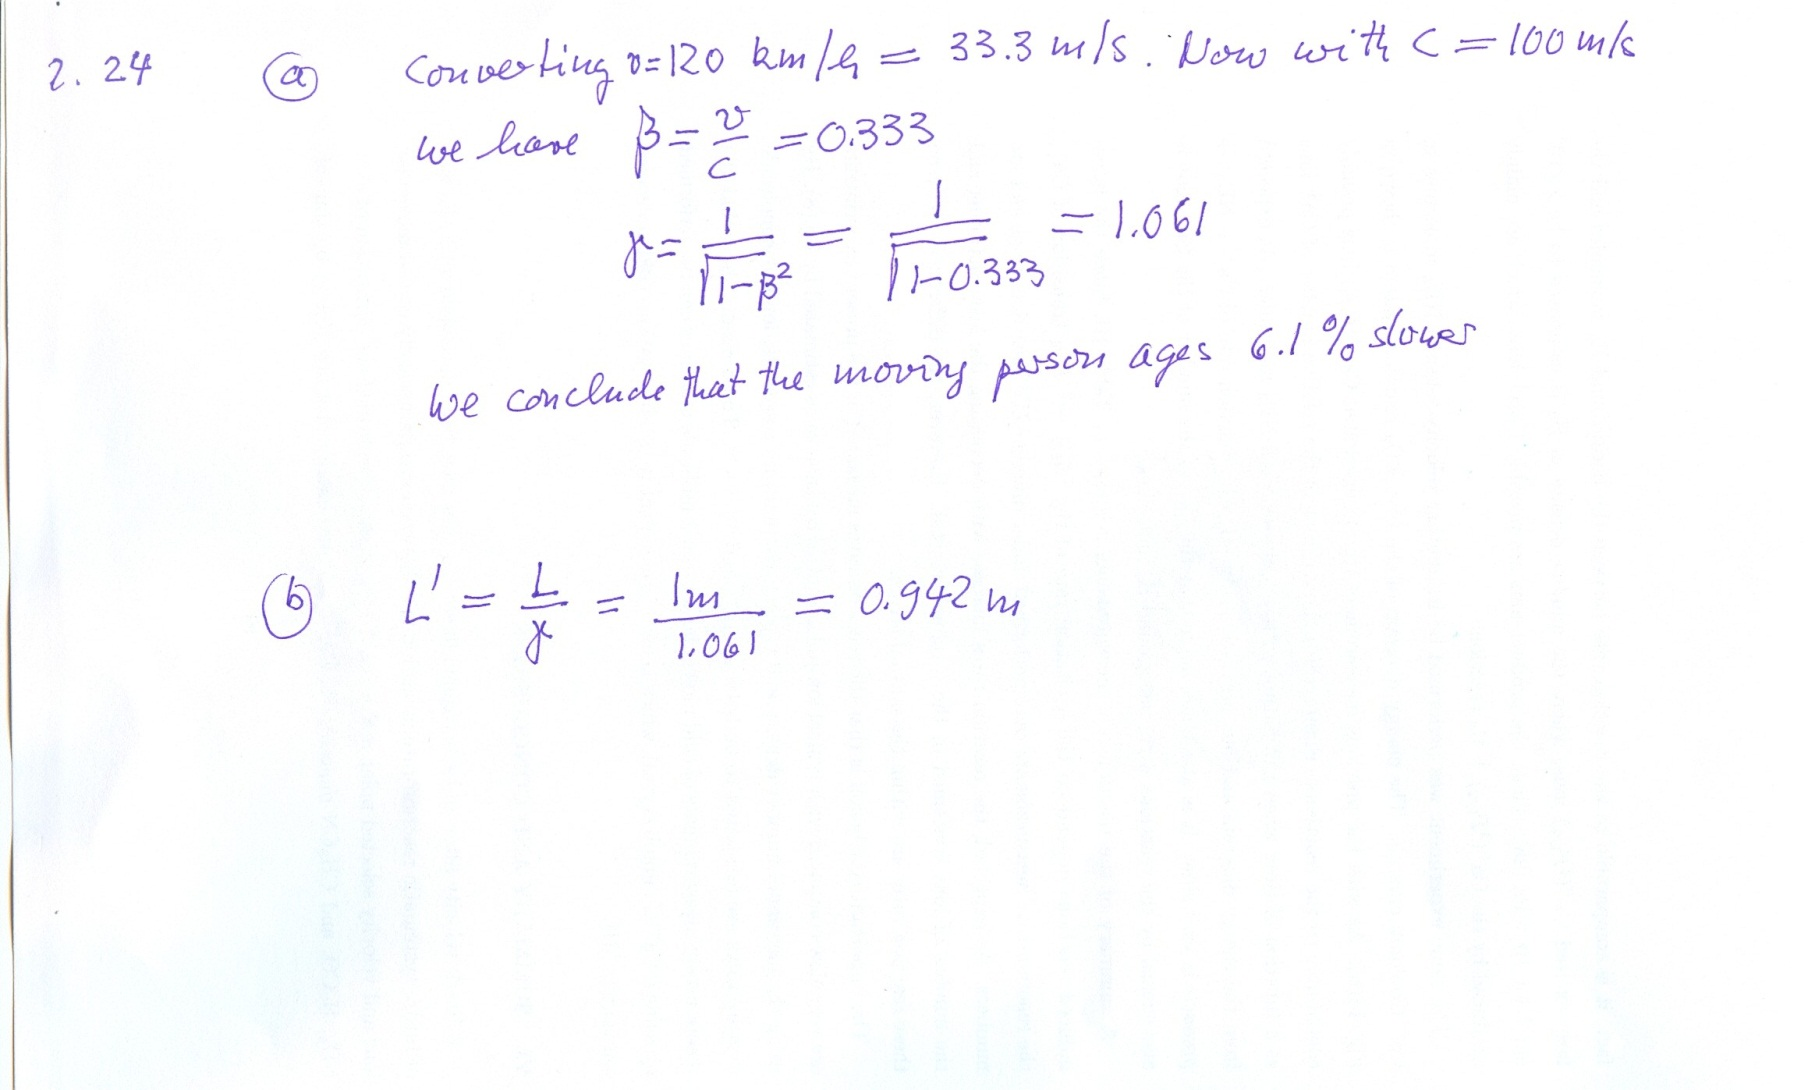 2.24 (a) Converting v=120 km/h = 33.3 m/s. Now with C = 100 m/s
we have β = v/c = 0.333
γ = 1/√(1-β²) = 1/√(1-0.333) = 1.061
We conclude that the moving person ages 6.1% slower
(b) L' = L/γ = 1m/1.061 = 0.942 m